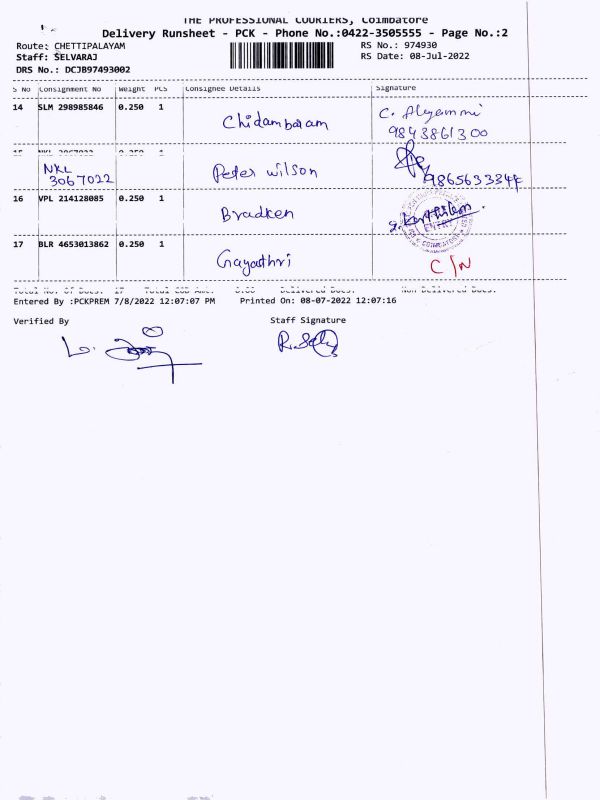 THE PROFESSIONAL COURIERS, Coimbatore
Delivery Runsheet - PCK - Phone No.:0422-3505555 - Page No.:2
Route: CHETTIPALAYAM RS No.: 974930
Staff: SELVARAJ RS Date: 08-Jul-2022
DRS No.: DCJB97493002
S No Consignment No Weight PCS Consignee Details Signature
14 SLM 298985846 0.250 1 Chidambaram C.
9843861300
15 NKL 3067022 0.250 1
NKL
3067022 Peter Wilson 9865633344
16 VPL 214128085 0.250 1 Bradken
ENTRY
COIMBATORE
17 BLR 4653013862 0.250 1 Gayathri C/N
Total No. of Docs. 17 Total COD Amt. 0.00 Delivered Docs. Non Delivered Docs.
Entered By :PCKPREM 7/8/2022 12:07:07 PM Printed On: 08-07-2022 12:07:16
Verified By Staff Signature